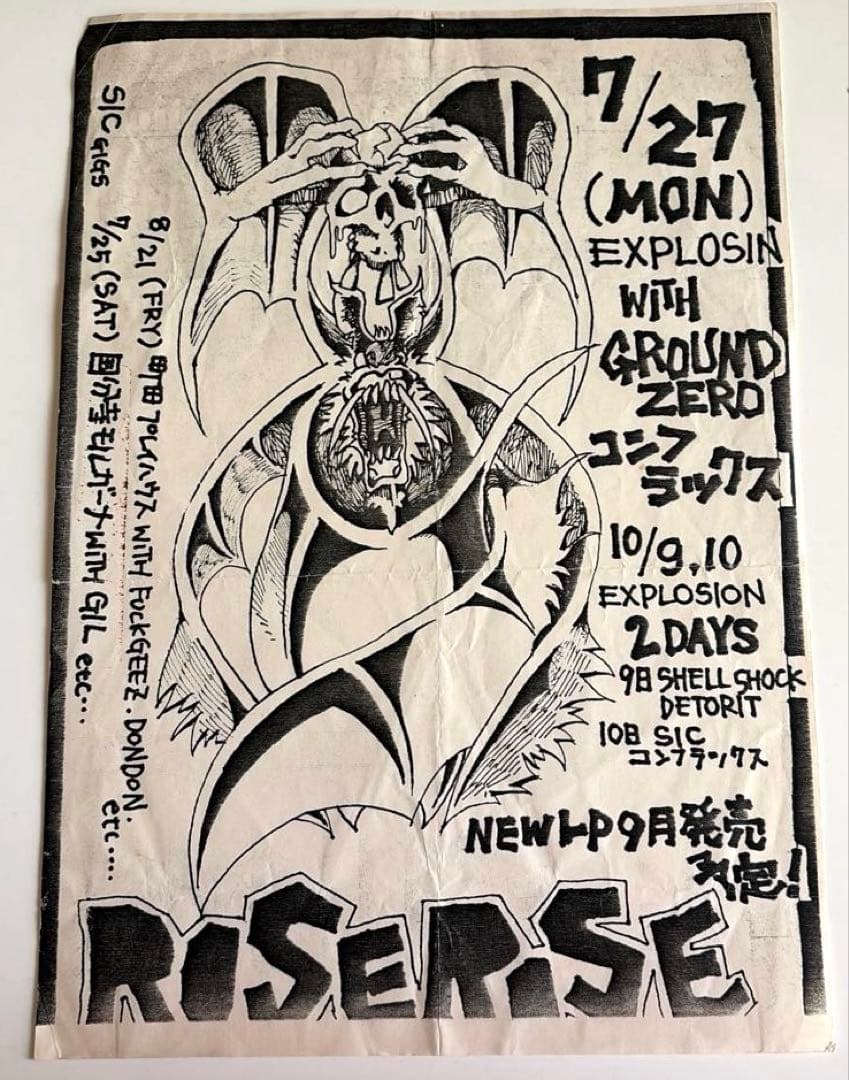 7/27
(MON)
EXPLOSIN
WITH
GROUND
ZERO
コンフ
ラックス
10/9,10
EXPLOSION
2 DAYS
9日 SHELL SHOCK
DETORIT
10日 SIC
コンフラックス
NEW LP 9月発売
決定!
8/21 (FRY) 町田プレイハウス WITH FUCKGEEZ. DONDON.
etc.....
SIC GIGS 7/25 (SAT) 国分寺モルガーナ WITH GIL etc...
RISE RISE